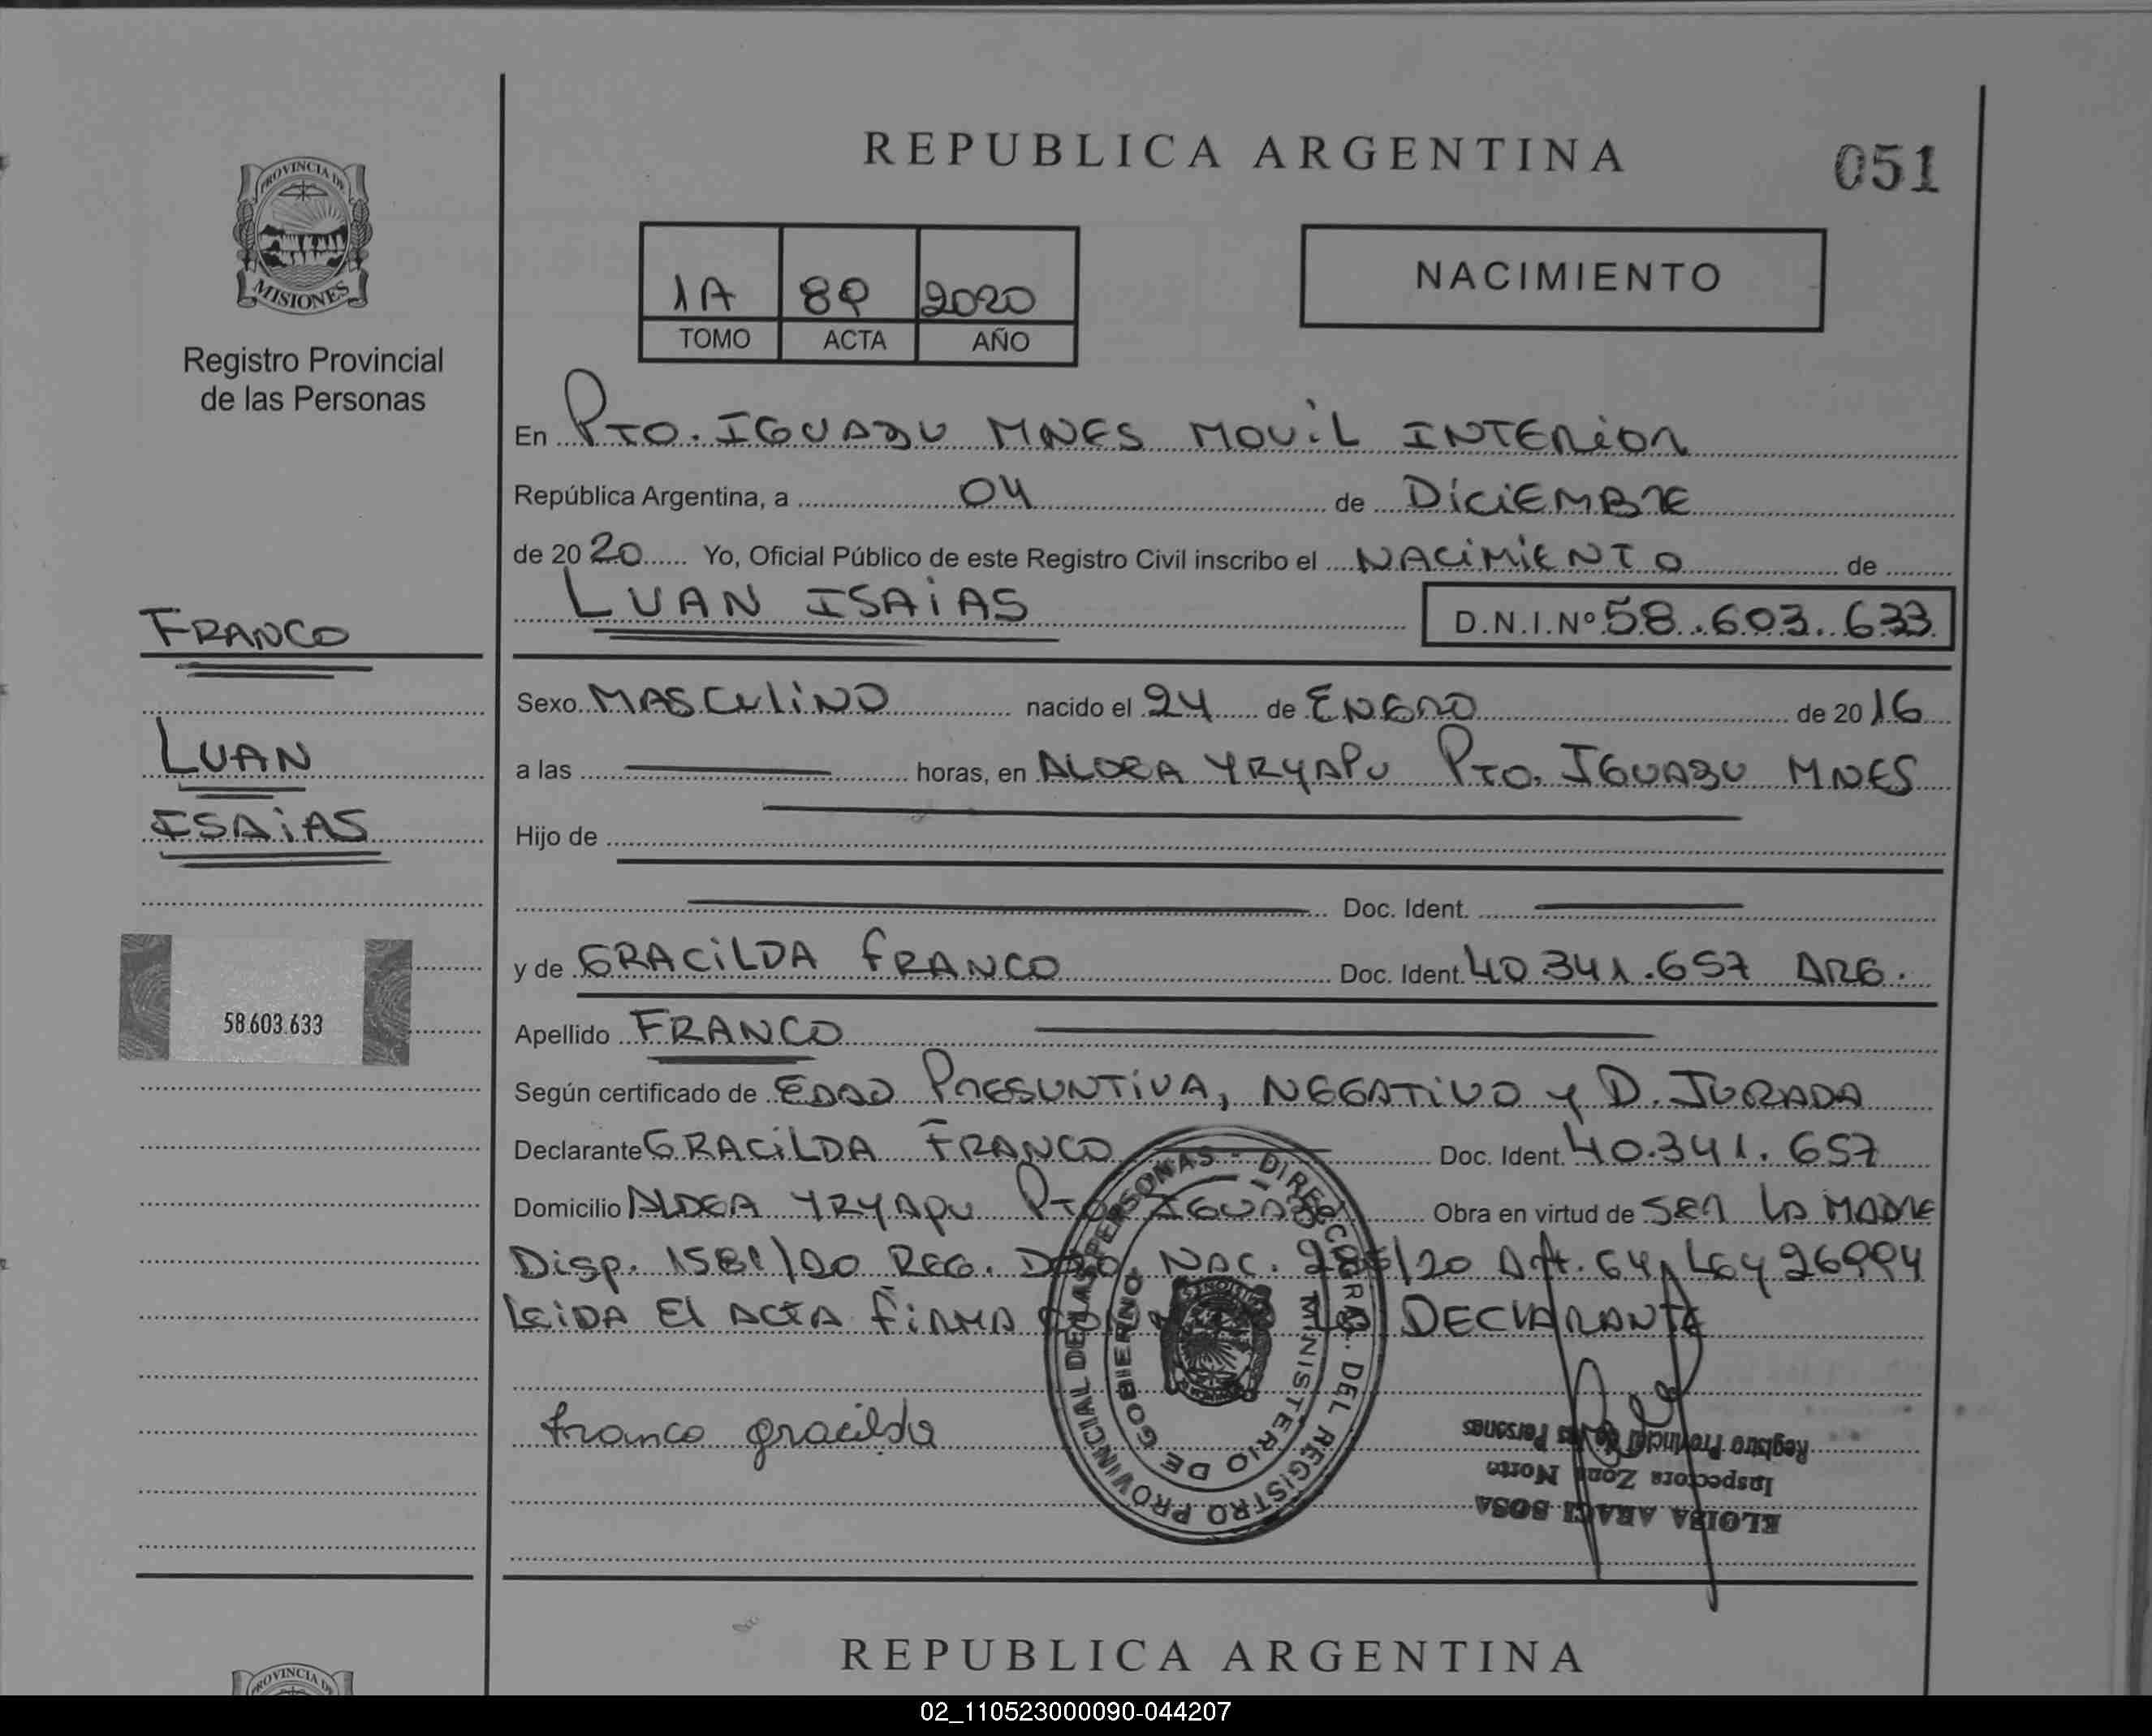 REPUBLICA ARGENTINA
051
PROVINCIA DE
MISIONES
Registro Provincial
de las Personas
1A 89 2020
TOMO ACTA AÑO
NACIMIENTO
En PTO. IGUAZU MNES MOVIL INTERIOR
República Argentina, a 04 de DICIEMBRE
de 2020 Yo, Oficial Público de este Registro Civil inscribo el NACIMIENTO de
LUAN ISAIAS D.N.I.Nº 58.603.633
FRANCO
LUAN
ISAIAS
58.603.633
Sexo MASCULINO nacido el 24 de ENERO de 2016
a las horas, en ALDEA YRYAPU PTO. IGUAZU MNES
Hijo de
Doc. Ident.
y de GRACILDA FRANCO Doc. Ident. 40.341.657 ARG.
Apellido FRANCO
Según certificado de EDAD PRESUNTIVA, NEGATIVO Y D. JURADA
Declarante GRACILDA FRANCO Doc. Ident. 40.341.657
Domicilio ALDEA YRYAPU PTO IGUAZU Obra en virtud de SER LA MADRE
Disp. 1581/20 REG. NAC. /20 Art. 64 LEY 26994
LEIDA El ACTA FIRMA LA DECLARANTE
franco gracilda
DIRECC. GRAL. DEL REGISTRO PROVINCIAL DE LAS PERSONAS -
MINISTERIO DE GOBIERNO
ELOISA ARACI SOSA
Inspectora Zona Norte
Registro Provincial de las Personas
REPUBLICA ARGENTINA
PROVINCIA DE
02_110523000090-044207